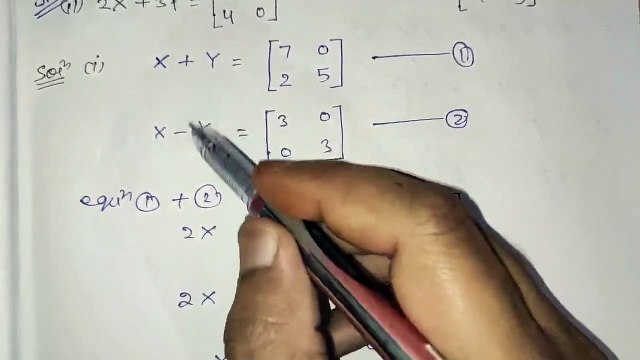 (ii) 2X + 3Y = [
4 0
Solⁿ (i) X + Y = [7 0
2 5] ——— (1)
X - Y = [3 0
0 3] ——— (2)
equⁿ (1) + (2)
2X
2X